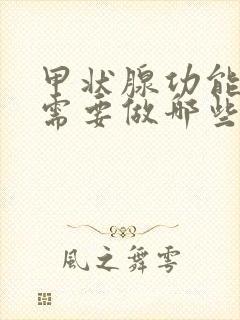 甲状腺功能
需要做那些
風之舞雩